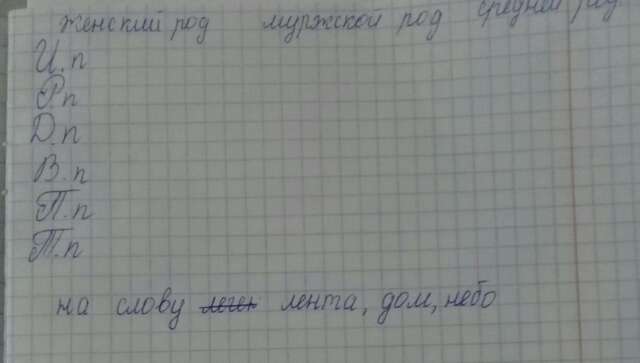 женский род муржской род средний род
И.п
Р.п
Д.п
В.п
П.п
Т.п
на слову лента, дом, небо